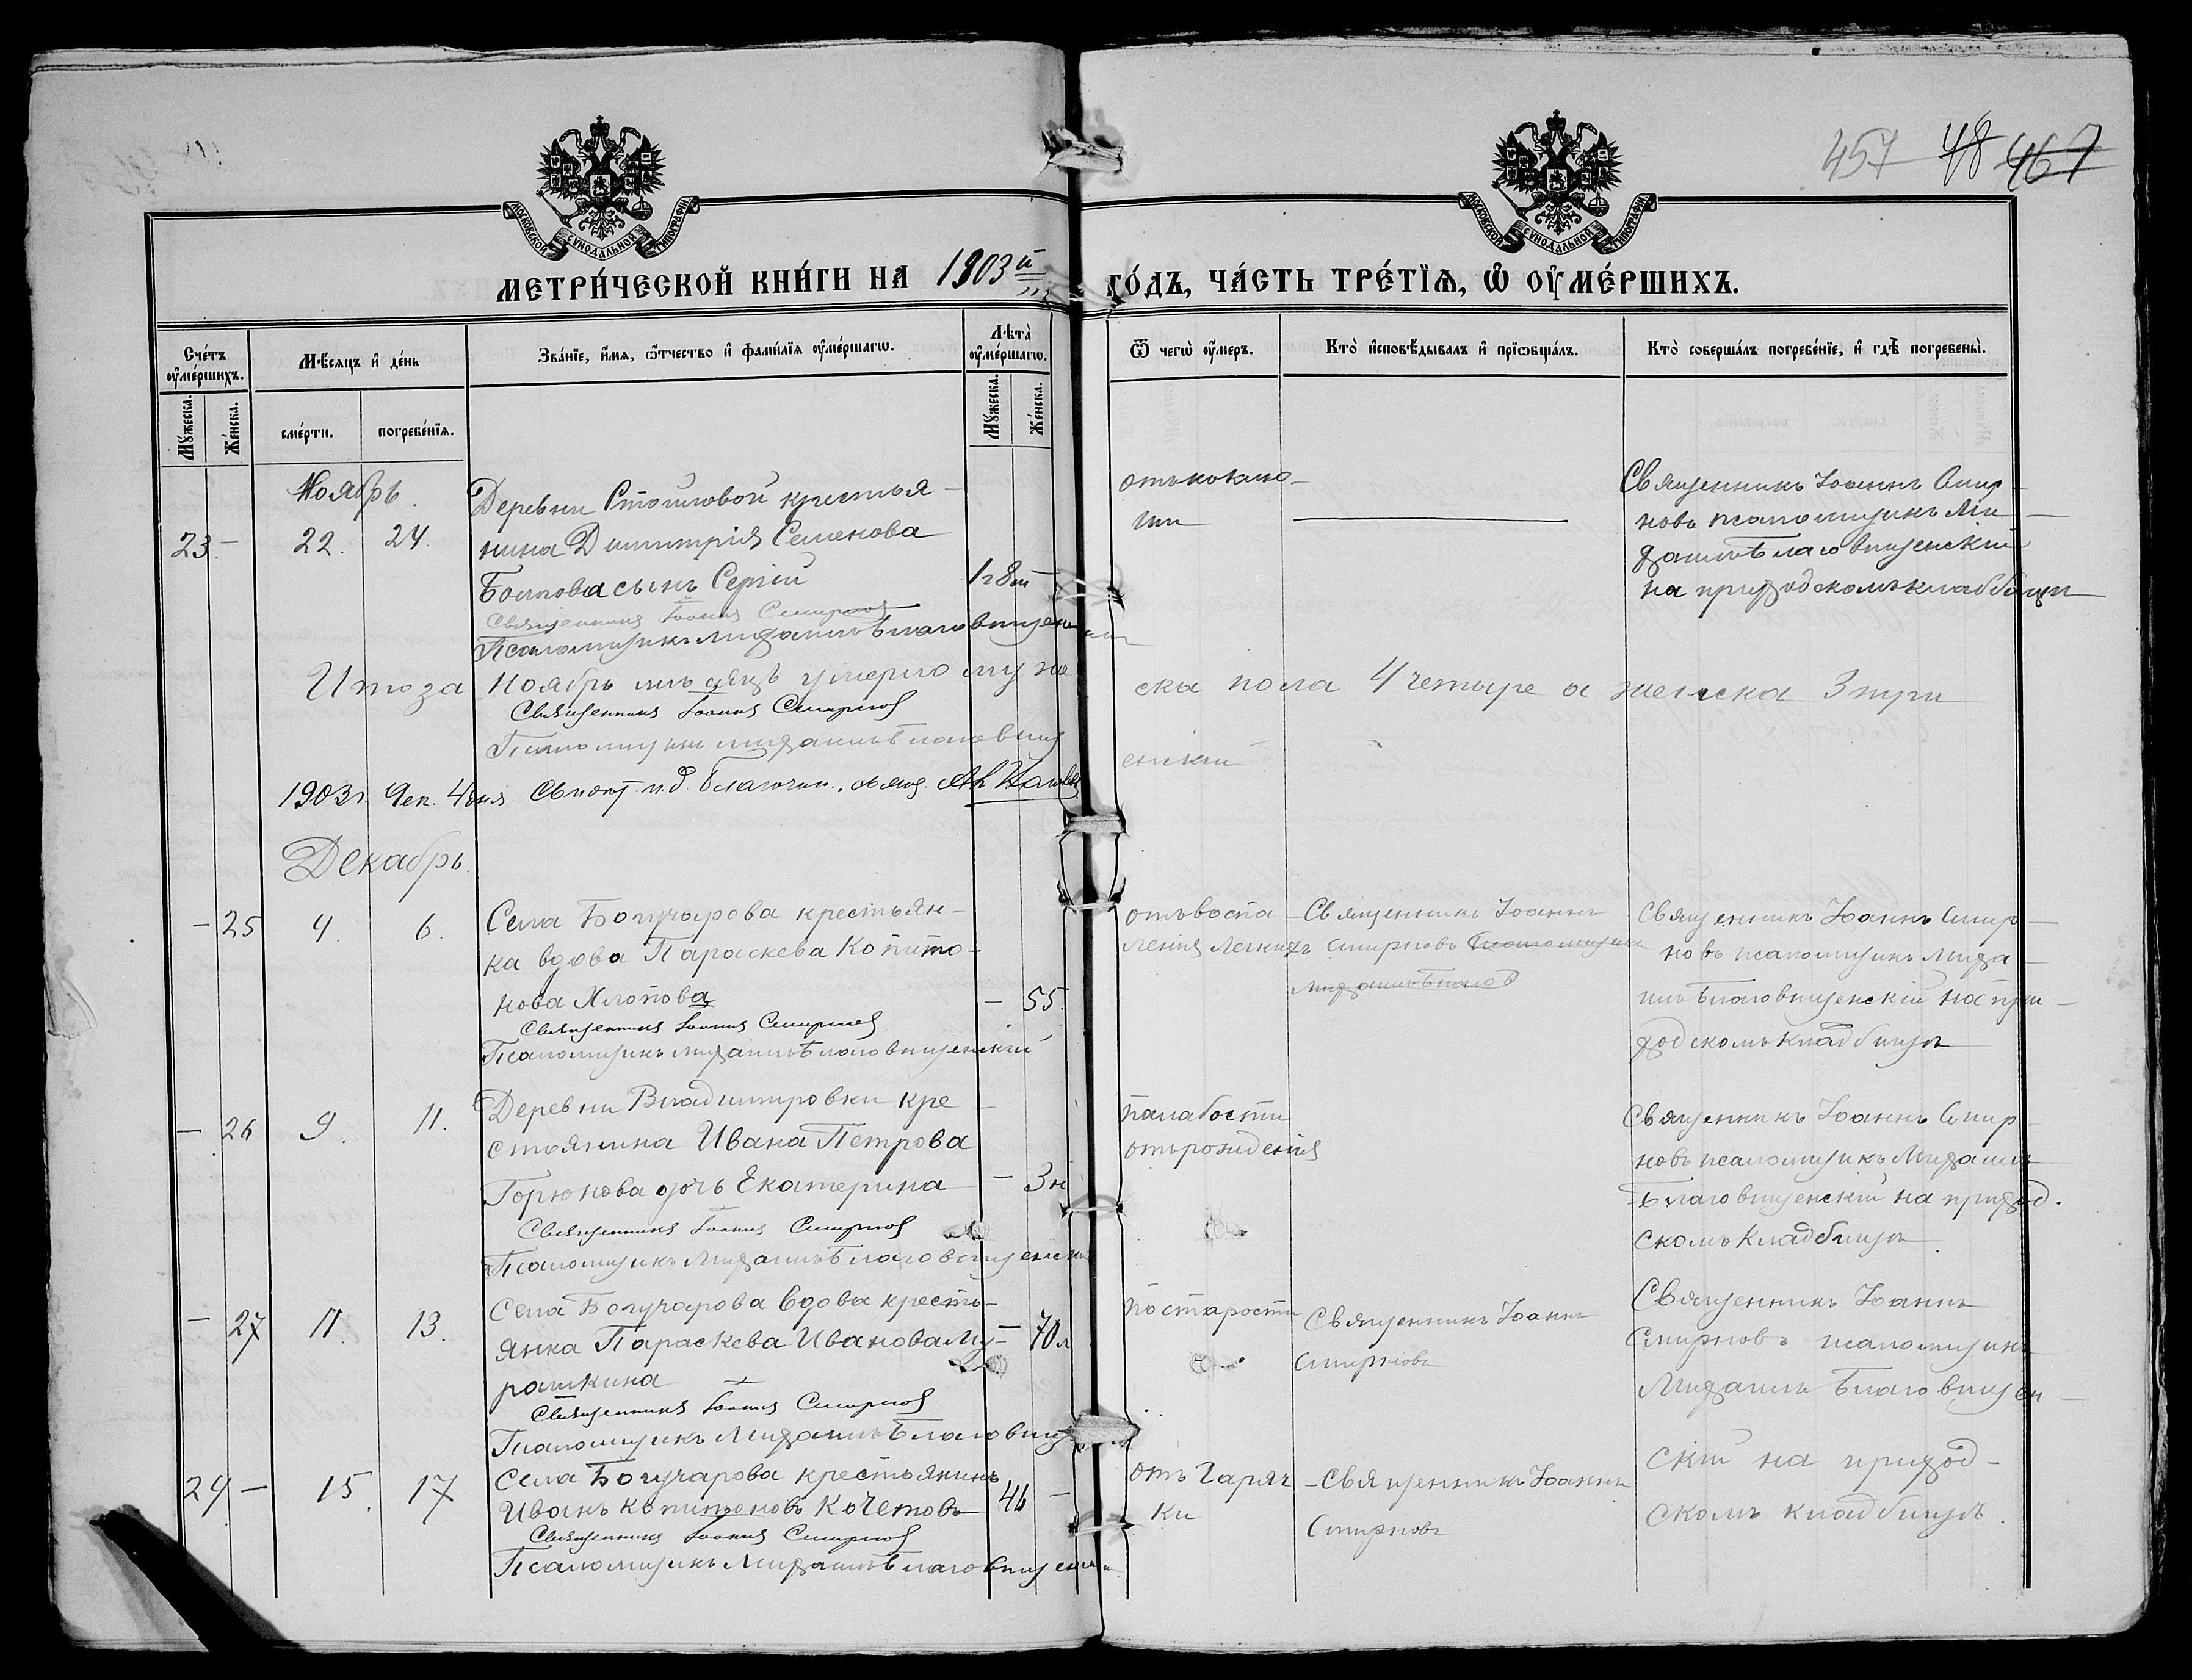 457 48 467
МОСКОВСКОЙ СѴНОДАЛЬНОЙ ТИПОГРАФІИ
МОСКОВСКОЙ СѴНОДАЛЬНОЙ ТИПОГРАФІИ
МЕТРИ́ЧЕСКОЙ КНИ́ГИ НА 1903й ГО́ДЪ, ЧА́СТЬ ТРЕ́ТЇѦ, Ѡ҆ ОУ҆МЕ́РШИХЪ.
Сче́тъ оу҆ме́ршихъ.
Мѣ́сяцъ и҆ де́нь
Зва́нїе, и҆́мѧ, ѻ҆́тчество и҆ фами́лїѧ оу҆ме́ршагѡ.
Лѣ́та оу҆ме́ршагѡ.
Ѿ чегѡ̀ оу҆́меръ.
Кто̀ и҆сповѣ́дывалъ и҆ прїѡбща́лъ.
Кто̀ соверша́лъ погребе́нїе, и҆ гдѣ̀ погребены̀.
Мꙋ́жеска.
Же́нска.
сме́рти.
погребе́нїѧ.
Мꙋ́жеска.
Же́нска.
Ноябрь.
23. – 22. 24.
Деревни Стойловой крестья-
нина Димитрія Семенова
сынъ Сергій 1г 8м –
Священникъ Іоаннъ Смирновъ
Псаломщикъ Михаилъ Благовѣщенскій
отъ коклю-
ша
Священникъ Іоаннъ Смир-
новъ псаломщикъ Ми-
хаилъ Благовѣщенскій
на приходскомъ кладбищи
Итого за Ноябрь мѣсяцъ умерло муже
ска пола 4 четыре а женска 3 три
Священникъ Іоаннъ Смирновъ
Псаломщикъ Михаилъ Благовѣщ
енскій
1903 г. Дек. 4 дня
Декабрь.
– 25 4. 6.
Села Богучарова крестьян-
ка вдова Параскева Капито-
нова Хлопова – 55.
Священникъ Іоаннъ Смирновъ
Псаломщикъ Михаилъ Благовѣщенскій
отъ воспа-
ленія легкихъ
Священникъ Іоаннъ
Смирновъ Псаломщикъ
Михаилъ Благов
Священникъ Іоаннъ Смир-
новъ псаломщикъ Миха-
илъ Благовѣщенскій на при-
ходскомъ кладбищѣ
– 26 9. 11.
Деревни Владимировки кре-
стьянина Ивана Петрова
Горюнова дочь Екатерина – 3 н
Священникъ Іоаннъ Смирновъ
Псаломщикъ Михаилъ Благовѣщенскі
по слабости
отъ рожденія
Священникъ Іоаннъ Смир
новъ псаломщикъ Михаилъ
Благовѣщенскій на приход.
скомъ кладбищѣ
– 27 11. 13.
Села Богучарова вдова кресть-
янка Параскева Иванова Му- – 70 л
рашкина
Священникъ Іоаннъ Смирновъ
Псаломщикъ Михаилъ Благовѣщ
по старости
Священникъ Іоаннъ
Смирновъ
Священникъ Іоаннъ
Смирновъ псаломщикъ
Михаилъ Благовѣщен-
скій на приход-
скомъ кладбищѣ.
24 – 15. 17
Села Богучарова крестьянинъ
Иванъ Капитоновъ Кочетовъ 46 –
Священникъ Іоаннъ Смирновъ
Псаломщикъ Михаилъ Благовѣщенскі
отъ Горяч-
ки
Священникъ Іоаннъ
Смирновъ